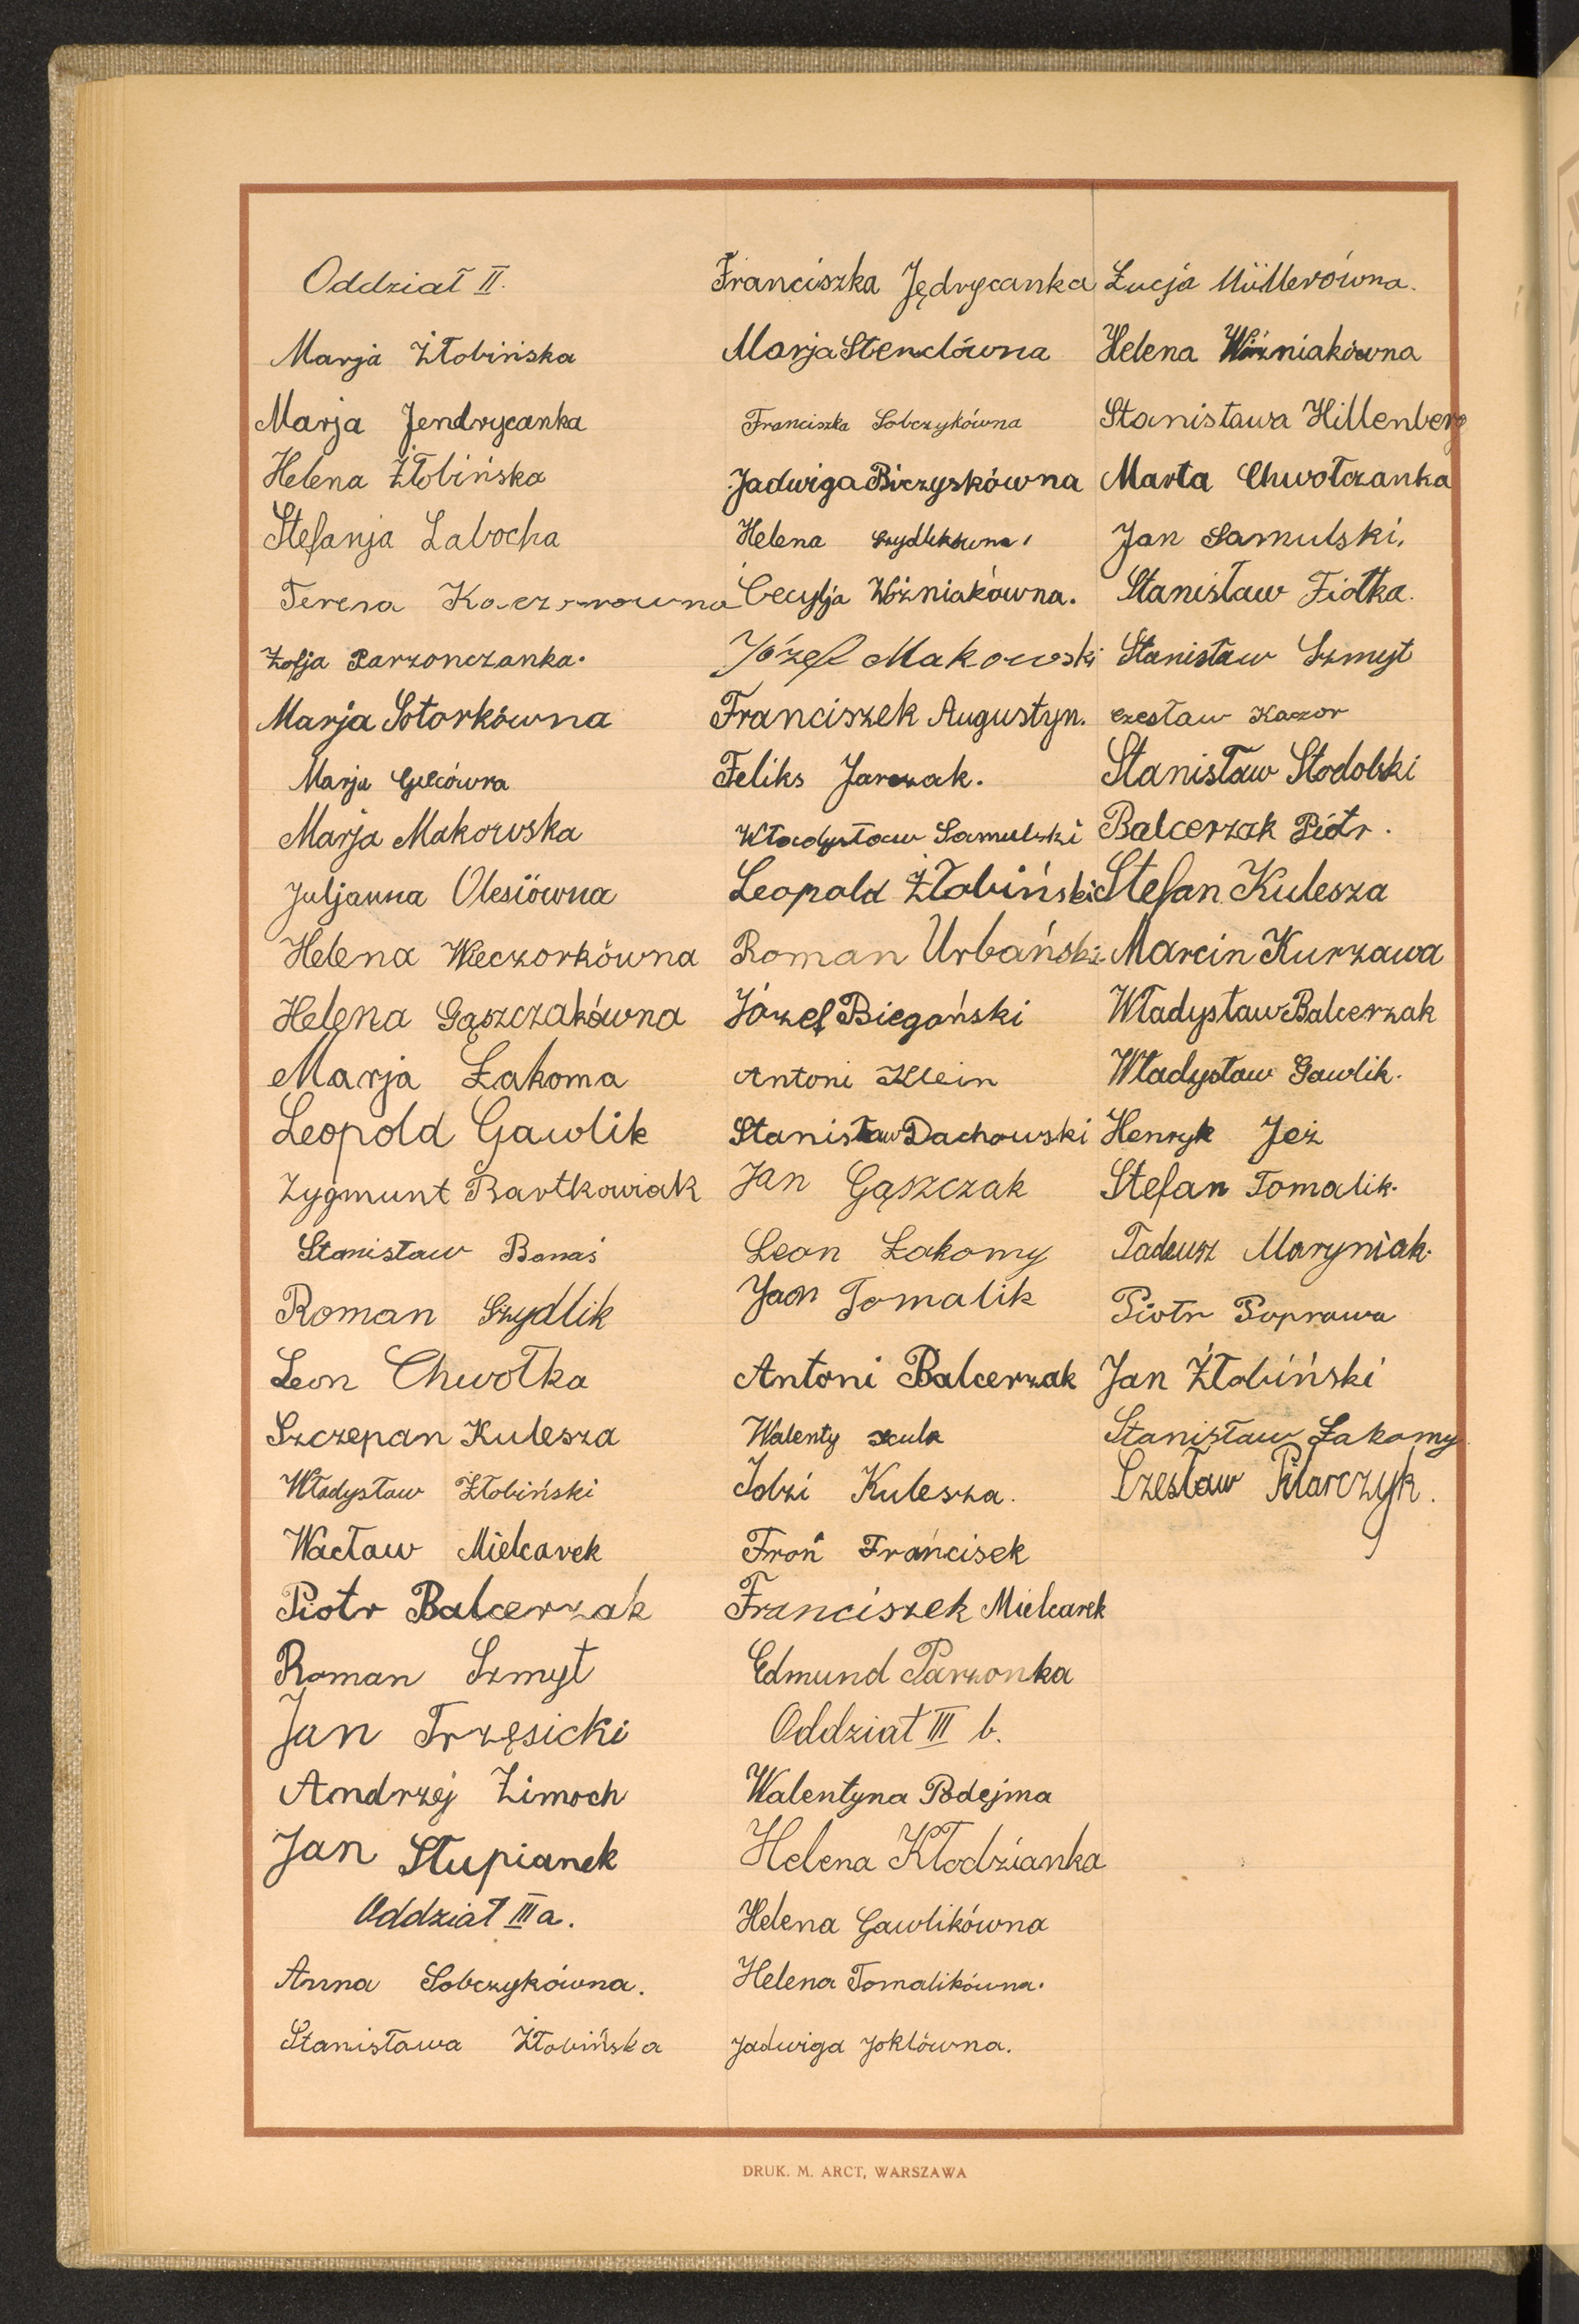 Oddział II.
Marja Żłobińska
Marja Jendrycanka
Helena Żłobińska
Stefanja Labocha
Teresa
Zofja Parzonczanka.
Marja Sotorkówna
Marja
Marja Makowska
Juljanna Olesiówna
Helena Wieczorkówna
Helena Gąszczakówna
Marja Łakoma
Leopold Gawlik
Zygmunt Bartkowiak
Stanisław Banaś
Roman Szydlik
Leon Chwołka
Szczepan Kulesza
Władysław Żłobiński
Wacław Mielcarek
Piotr Balcerzak
Roman Szmyt
Jan Trzęsicki
Andrzej Zimoch
Jan Słupianek
Oddział III a.
Anna Sobczykówna.
Stanisława Żłobińska
Franciszka Jędrycanka
Marja Stenclówna
Franciszka Sobczykówna
Jadwiga Biczyskówna
Helena Szydlikówna
Cecylja Woźniakówna.
Józef Makowski
Franciszek Augustyn.
Feliks Jarczak.
Władysław Samulski
Leopold Żłobiński
Roman Urbański
Józef Biegański
Antoni Klein
Stanisław Dachowski
Jan Gąszczak
Leon Łakomy
Jan Tomalik
Antoni Balcerzak
Walenty
Idzi Kulesza.
Froń Francisek
Franciszek Mielcarek
Edmund Parzonka
Oddział III b.
Walentyna Podejma
Helena Kłodzianka
Helena Gawlikówna
Helena Tomalikówna.
Jadwiga Joklówna.
Łucja Müllerówna.
Helena Woźniakówna
Stanisława Hillenberg
Marta Chwołczanka
Jan Samulski.
Stanisław Fiołka.
Stanisław Szmyt
Czesław Kaczor
Stanisław Stodolski
Balcerzak Piotr.
Stefan Kulesza
Marcin Kurzawa
Władysław Balcerzak
Władysław Gawlik.
Henryk Jeż
Stefan Tomalik.
Tadeusz Maryniak.
Piotr Poprawa
Jan Żłobiński
Stanisław Łakomy
Czesław Pilarczyk.
DRUK. M. ARCT, WARSZAWA